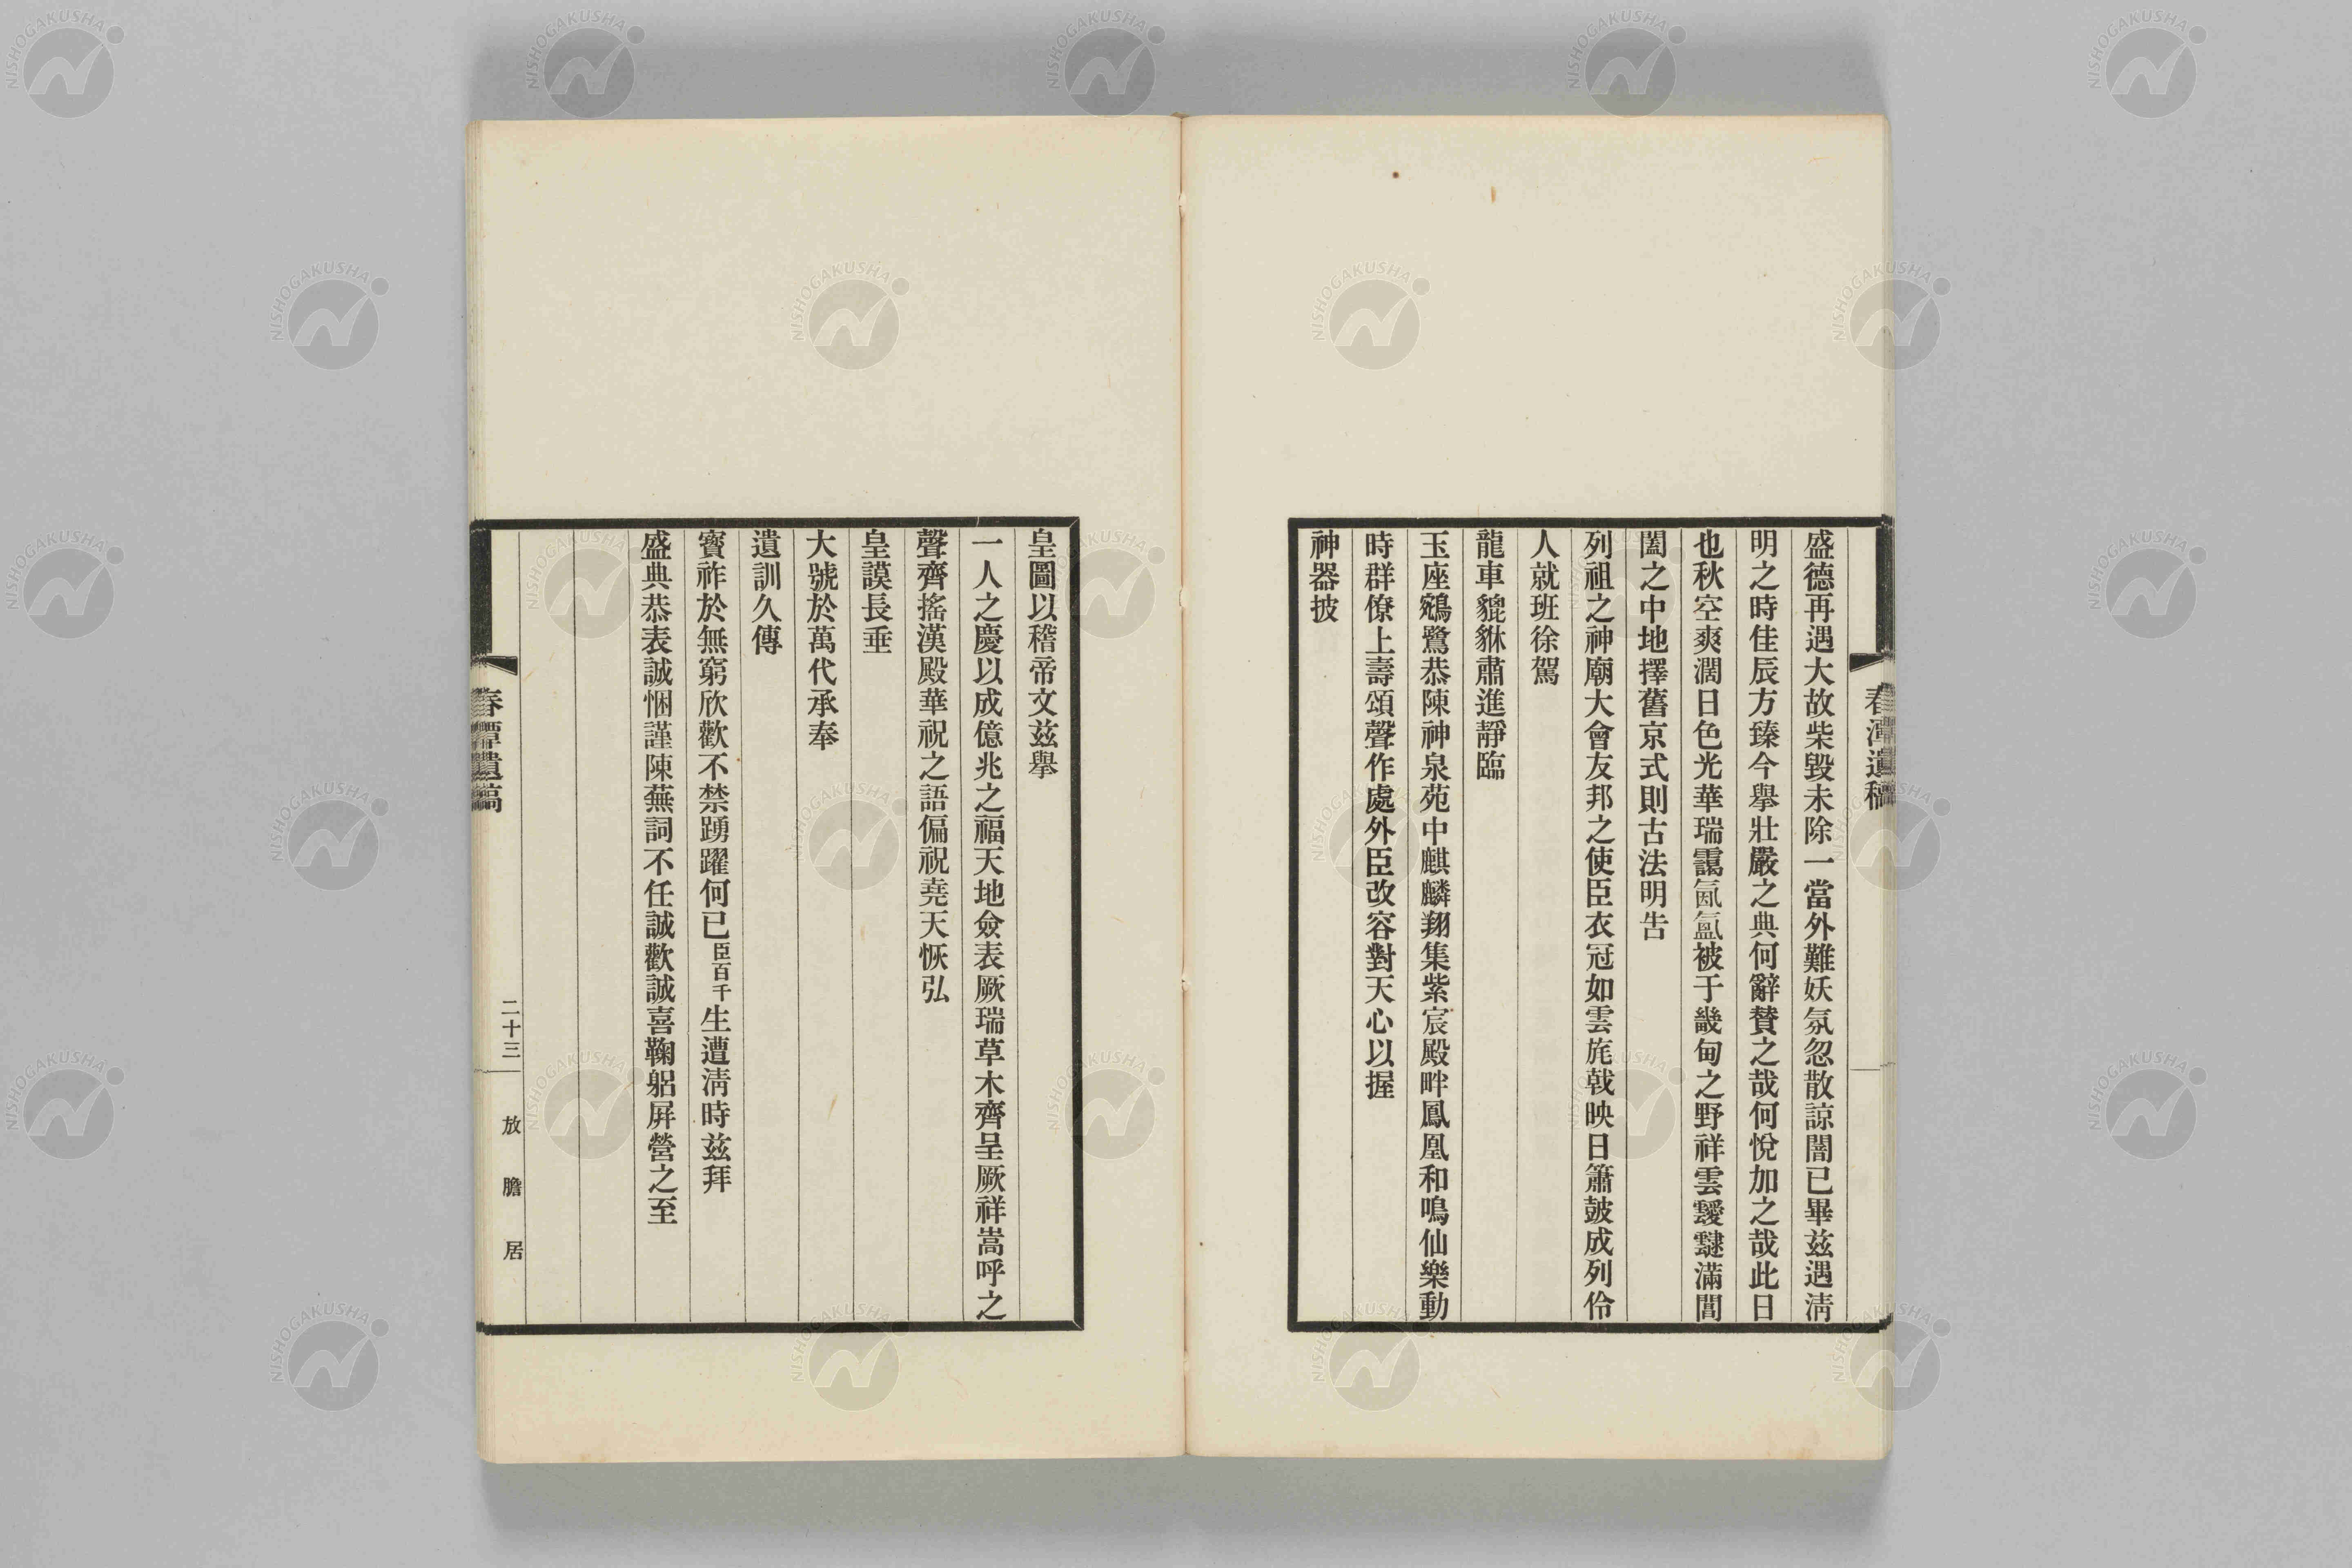 盛德再遇大故柴毀未除一當外難妖氛忽散諒闇已畢玆遇淸
明之時佳辰方臻今擧壯嚴之典何辭賛之哉何悅加之哉此日
也秋空爽濶日色光華瑞靄氤氳被于畿甸之野祥雲靉靆滿閶
闔之中地擇舊京式則古法明告
列祖之神廟大會友邦之使臣衣冠如雲旄戟映日簫皷成列伶
人就班徐駕
龍車貔貅肅進靜臨
玉座鵷鷺恭陳神泉苑中麒麟翔集紫宸殿畔鳳凰和鳴仙樂動
時群僚上壽頌聲作處外臣改容對天心以握
神器披
春潭遺稿
皇圖以稽帝文玆擧
一人之慶以成億兆之福天地僉表厥瑞草木齊呈厥祥嵩呼之
聲齊搖漢殿華祝之語偏祝堯天恢弘
皇謨長垂
大號於萬代承奉
遺訓久傳
寶祚於無窮欣歡不禁踴躍何已臣百千生遭淸時玆拜
盛典恭表誠悃謹陳蕪詞不任誠歡誠喜鞠躳屛營之至
春潭遺稿
二十三
放膽居
NISHOGAKUSHA